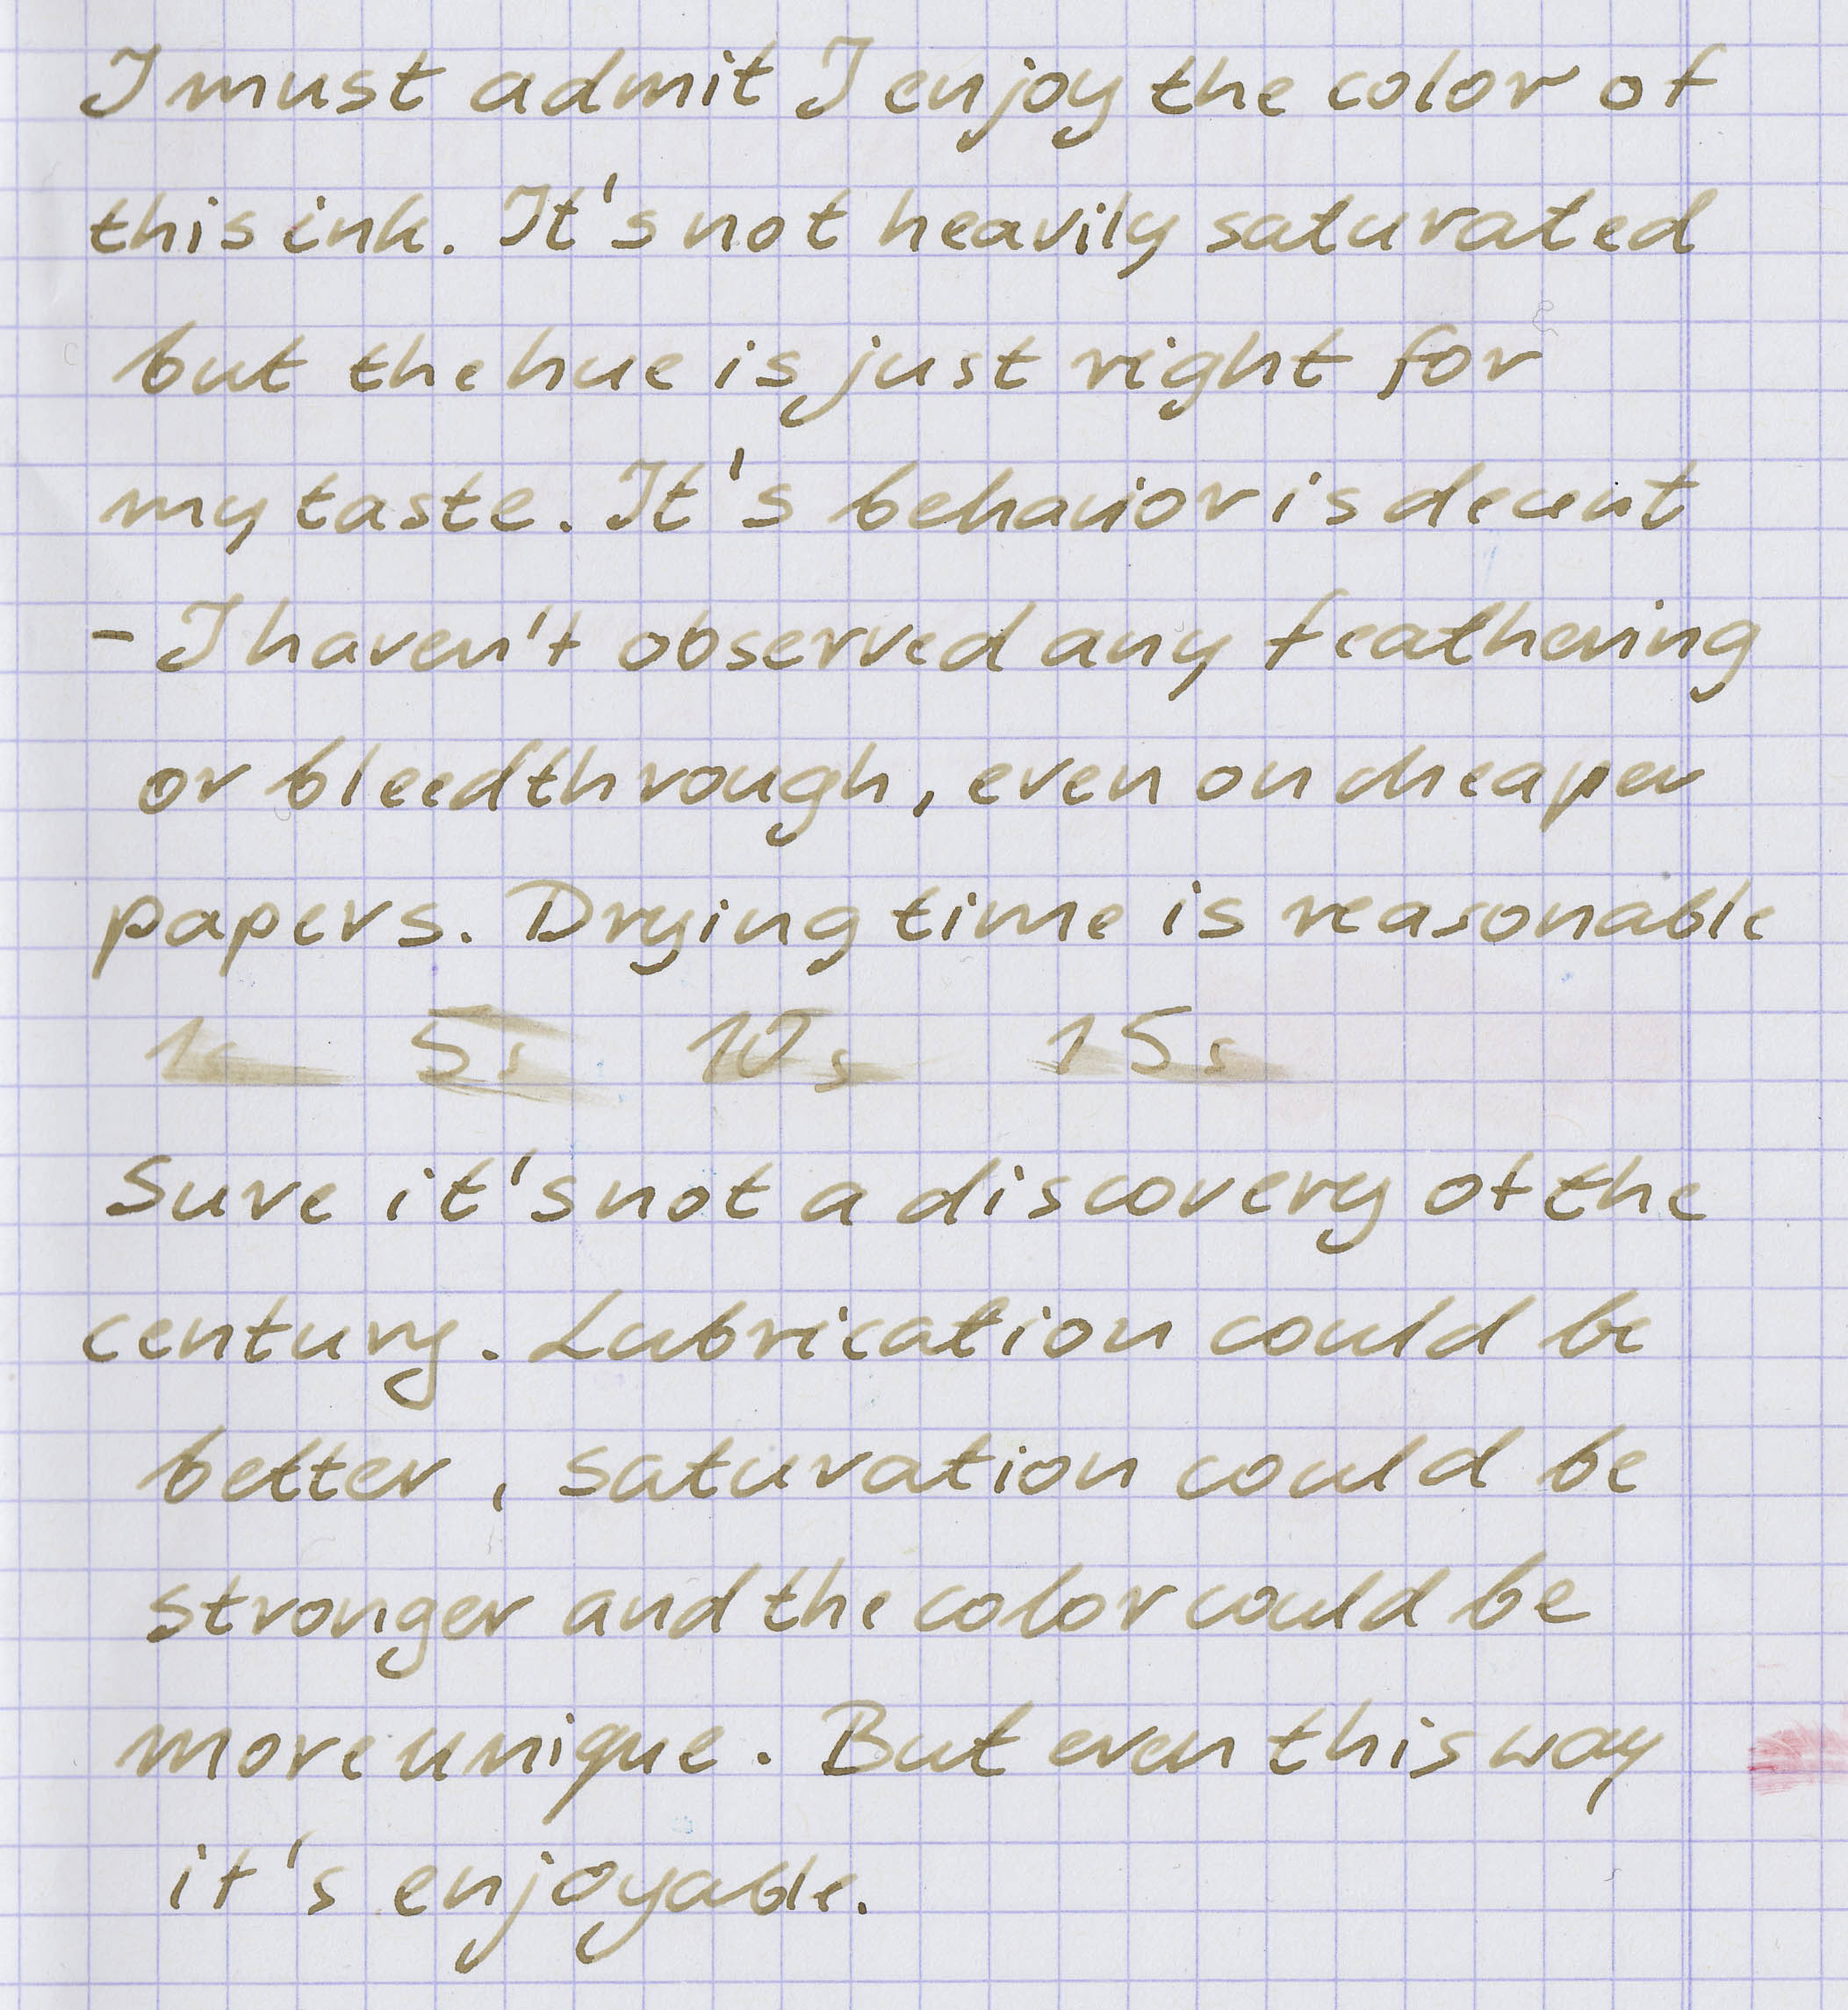 I must admit I enjoy the color of
this ink. It's not heavily saturated
but the hue is just right for
my taste. It's behavior is decent
- I haven't observed any feathering
or bleedthrough, even on cheaper
papers. Drying time is reasonable
1s 5s 10s 15s
Sure it's not a discovery of the
century. Lubrication could be
better, saturation could be
stronger and the color could be
more unique. But even this way
it's enjoyable.